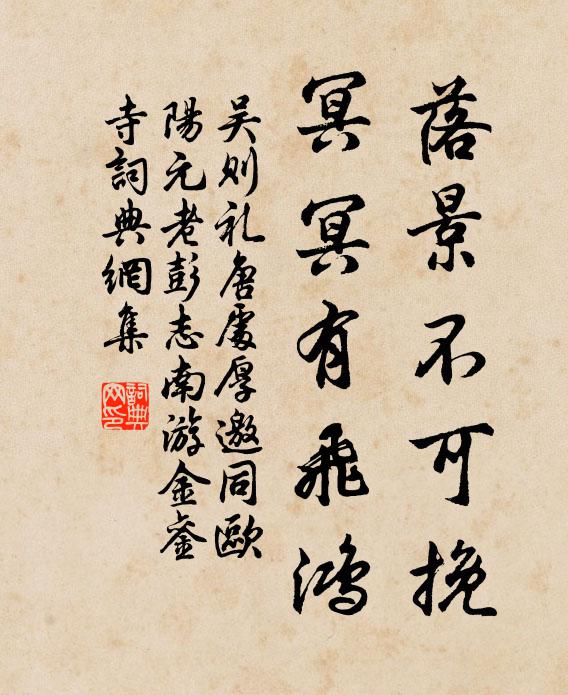 落景不可挽
冥冥有飛鴻
吴则礼唐處厚邀同歐
陽元老彭志南游金銮
寺詞典網集
詞典网印